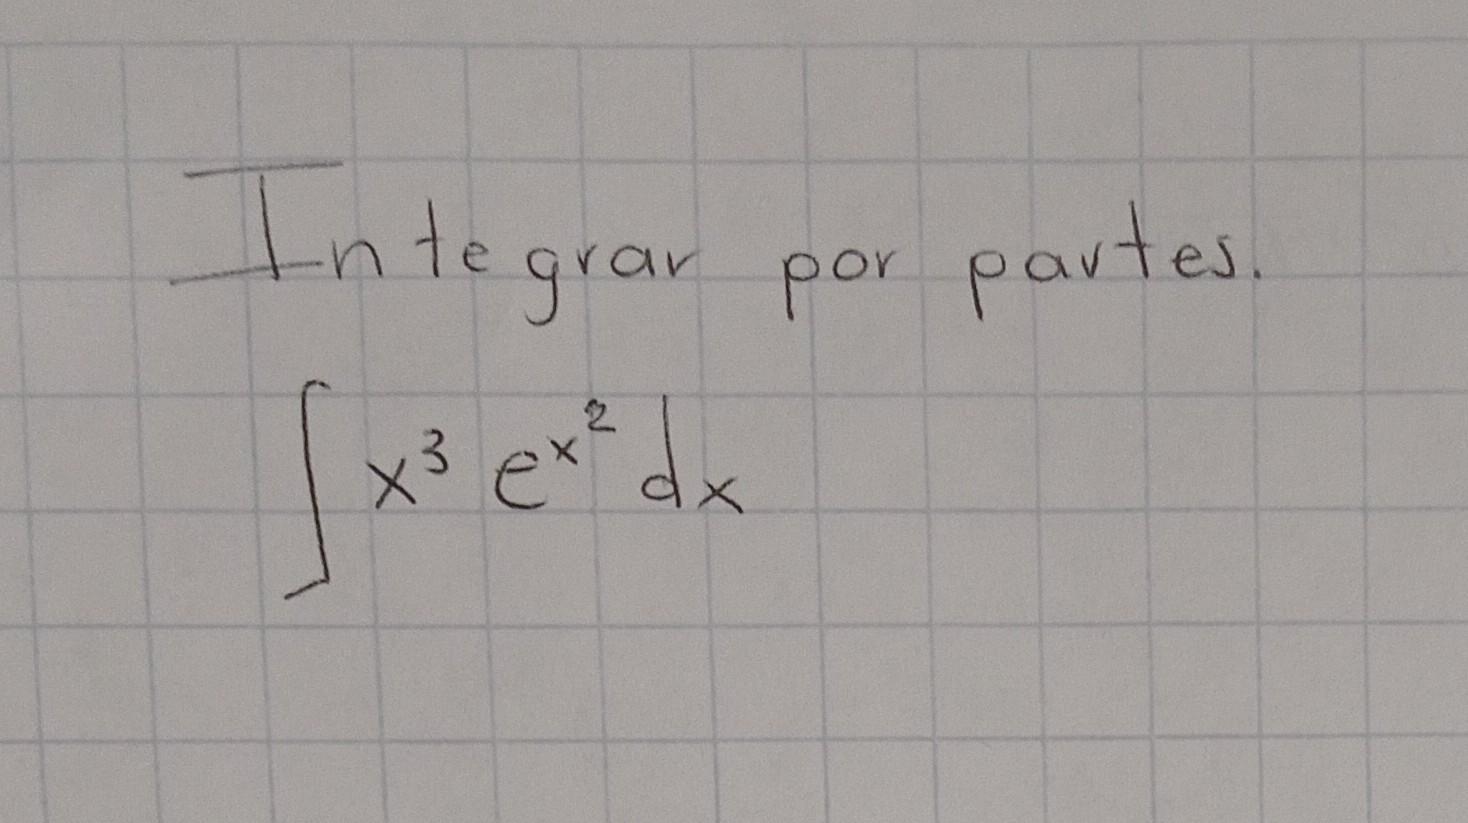 Integrar por partes.
∫ x³ e^{x²} dx